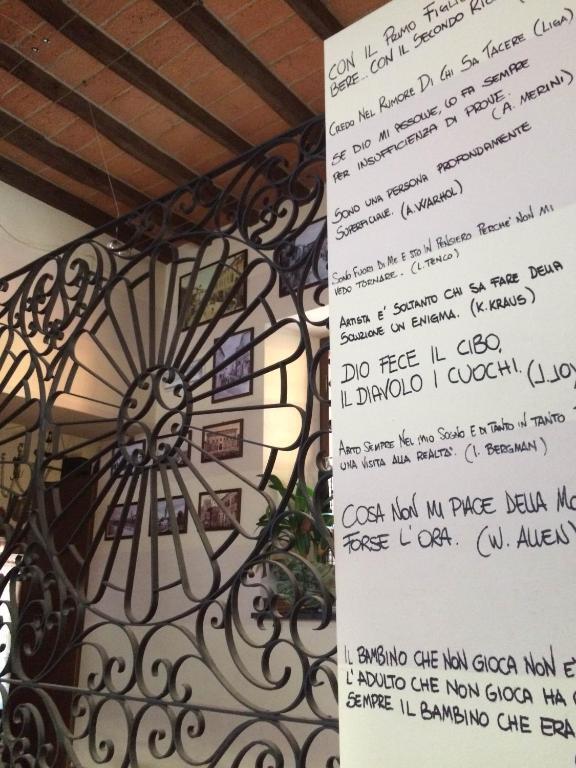 CON IL PRIMO FIGLIO
BERE... CON IL SECONDO
CREDO NEL RUMORE DI CHI SA TACERE (LIGA)
SE DIO MI ASSOLVE, LO FA SEMPRE
PER INSUFFICIENZA DI PROVE. (A. MERINI)
SONO UNA PERSONA PROFONDAMENTE
SUPERFICIALE. (A. WARHOL)
SONO FUORI DI ME E STO IN PENSIERO PERCHE' NON MI
VEDO TORNARE. (L. TENCO)
ARTISTA E' SOLTANTO CHI SA FARE DELLA
SOLUZIONE UN ENIGMA. (K. KRAUS)
DIO FECE IL CIBO,
IL DIAVOLO I CUOCHI. (J. JOY
ABITO SEMPRE NEL MIO SOGNO E DI TANTO IN TANTO
UNA VISITA ALLA REALTA'. (I. BERGMAN)
COSA NON MI PIACE DELLA MO
FORSE L'ORA. (W. ALLEN)
IL BAMBINO CHE NON GIOCA NON E'
L'ADULTO CHE NON GIOCA HA
SEMPRE IL BAMBINO CHE ERA